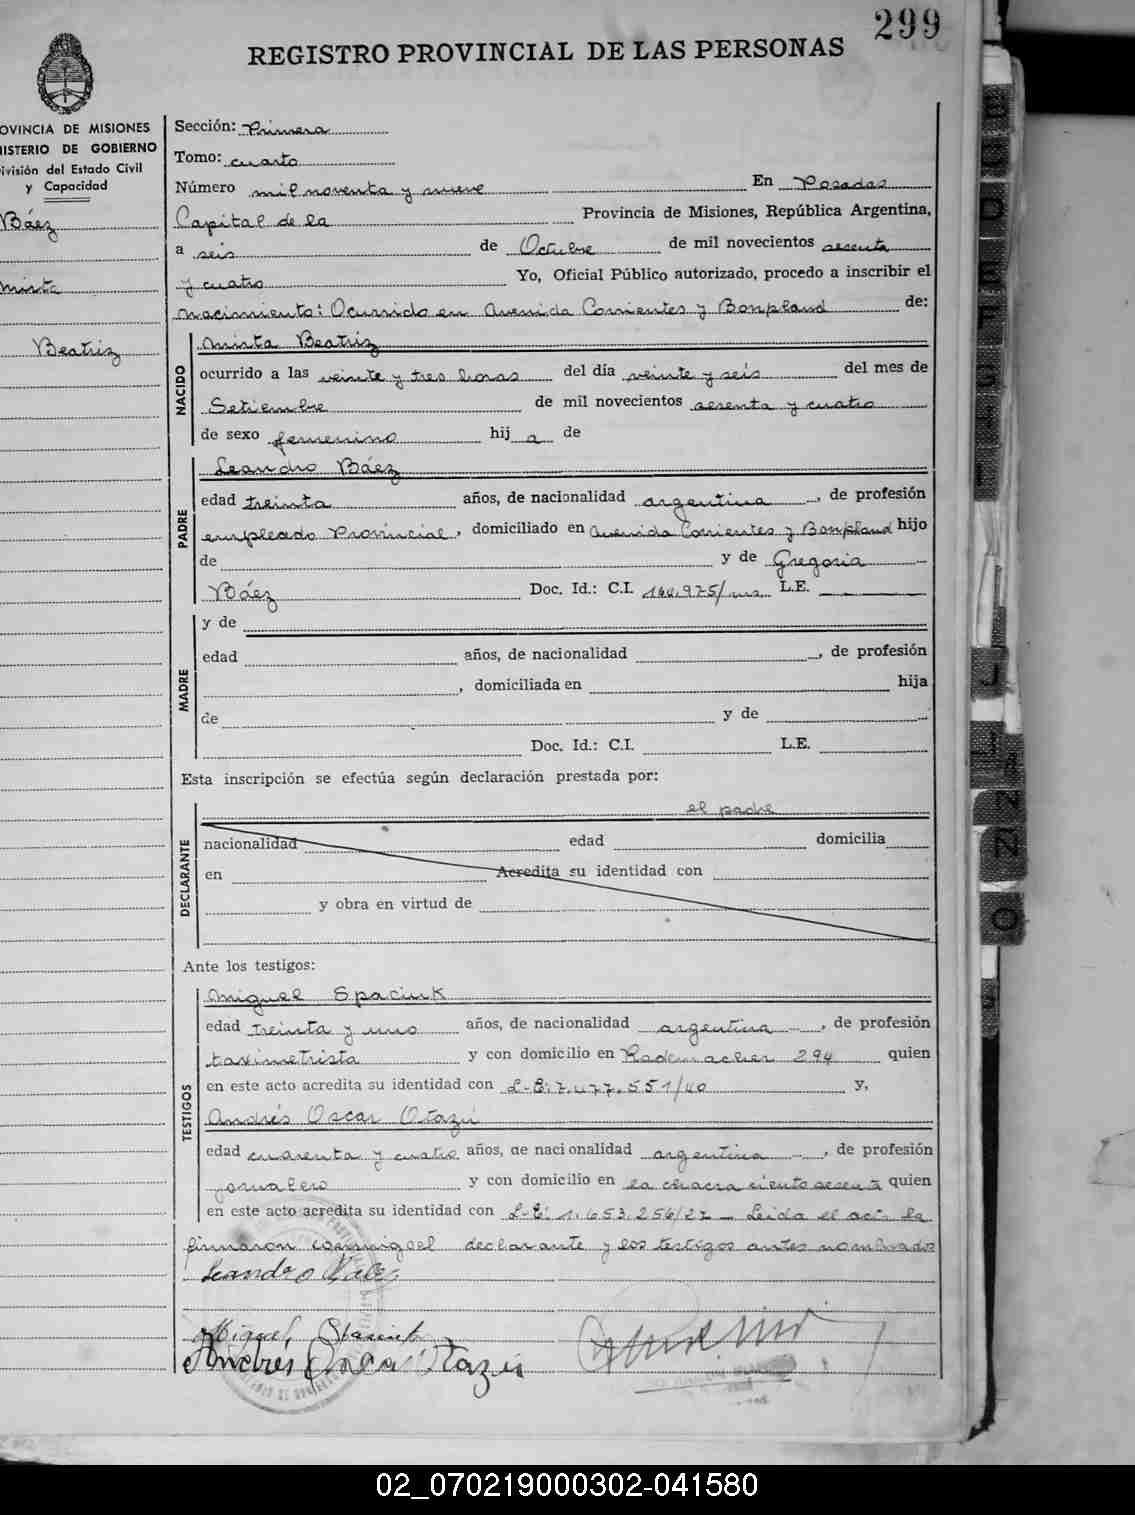 299
REGISTRO PROVINCIAL DE LAS PERSONAS
OVINCIA DE MISIONES
ISTERIO DE GOBIERNO
ivisión del Estado Civil
y Capacidad
Báez
Mirta
Beatriz
Sección: Primera
Tomo: cuarto
Número mil noventa y nueve En Posadas
Capital de la Provincia de Misiones, República Argentina,
a seis de Octubre de mil novecientos sesenta
y cuatro Yo, Oficial Público autorizado, procedo a inscribir el
nacimiento: Ocurrido en Avenida Corrientes y Bonpland de:
NACIDO
Mirta Beatriz
ocurrido a las veinte y tres horas del día veinte y seis del mes de
Setiembre de mil novecientos sesenta y cuatro
de sexo femenino hij a de
PADRE
Leandro Báez
edad treinta años, de nacionalidad argentina, de profesión
empleado Provincial, domiciliado en Avenida Corrientes y Bonpland hijo
de y de Gregoria
Báez Doc. Id.: C.I. 160.975/ms L.E.
MADRE
y de
edad años, de nacionalidad , de profesión
, domiciliada en hija
de y de
Doc. Id.: C.I. L.E.
Esta inscripción se efectúa según declaración prestada por:
el padre
DECLARANTE
nacionalidad edad domicilia
en Acredita su identidad con
y obra en virtud de
Ante los testigos:
TESTIGOS
Miguel Spaciuk
edad treinta y uno años, de nacionalidad argentina, de profesión
taximetrista y con domicilio en Rademacher 294 quien
en este acto acredita su identidad con L-E: 7.477.551/40 y,
Andrés Oscar Otazú
edad cuarenta y cuatro años, de nacionalidad argentina, de profesión
jornalero y con domicilio en la chacra ciento sesenta quien
en este acto acredita su identidad con L-E: 1.653.256/27 - Leida el acta la
firmaron conmigo el declarante y los testigos antes nombrados
Leandro Baez
Miguel Spaciuk
Andrés Oscar Otazú
02_070219000302-041580